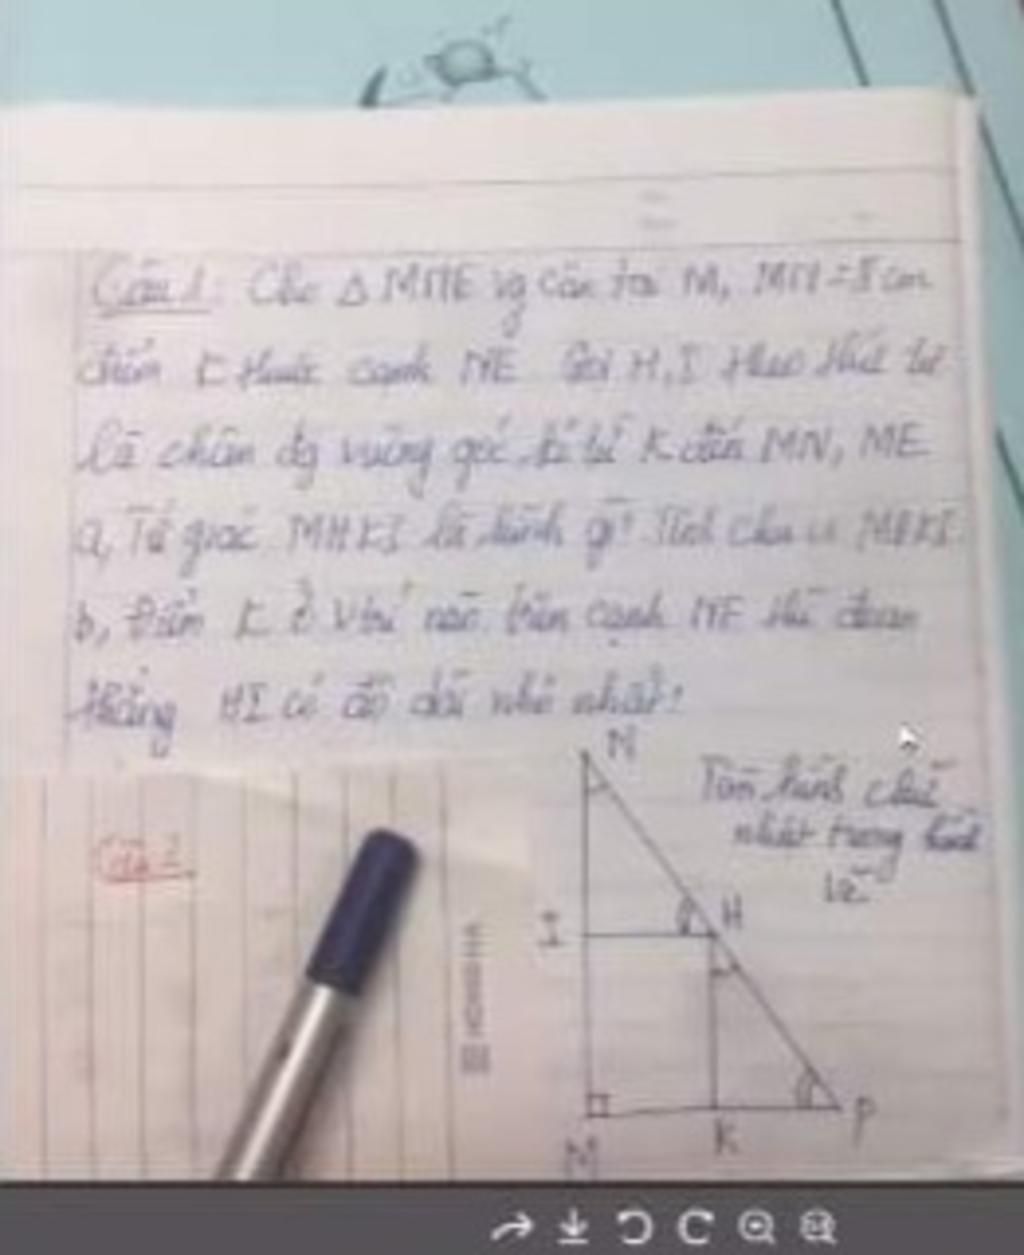 Câu 1: Cho Δ MNE vg cân tại M, MN = 8 cm
điểm K thuộc cạnh NE Gọi H, I theo thứ tự
là chân đg vuông góc kẻ từ K đến MN, ME
a, Tứ giác MHKI là hình gì? Tính chu vi MHKI
b, Điểm K ở vtrí nào trên cạnh NE thì đoạn
thẳng HI có độ dài nhỏ nhất?
N
Tìm hình chữ
nhật trong hình
vẽ
Câu 2
H
I
M
K
P